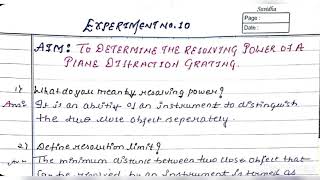 Sunidhi
Page :
Date :
EXPERIMENT NO. 10
AIM: TO DETERMINE THE RESOLVING POWER OF A
PLANE DIFFRACTION GRATING.
1) What do you mean by resolving power?
Ans: It is an ability of an instrument to distinguish
the two close object seperately.
2) Define resolution limit?
The minimum distance between two close object that
can be resolved by an instrument is termed as